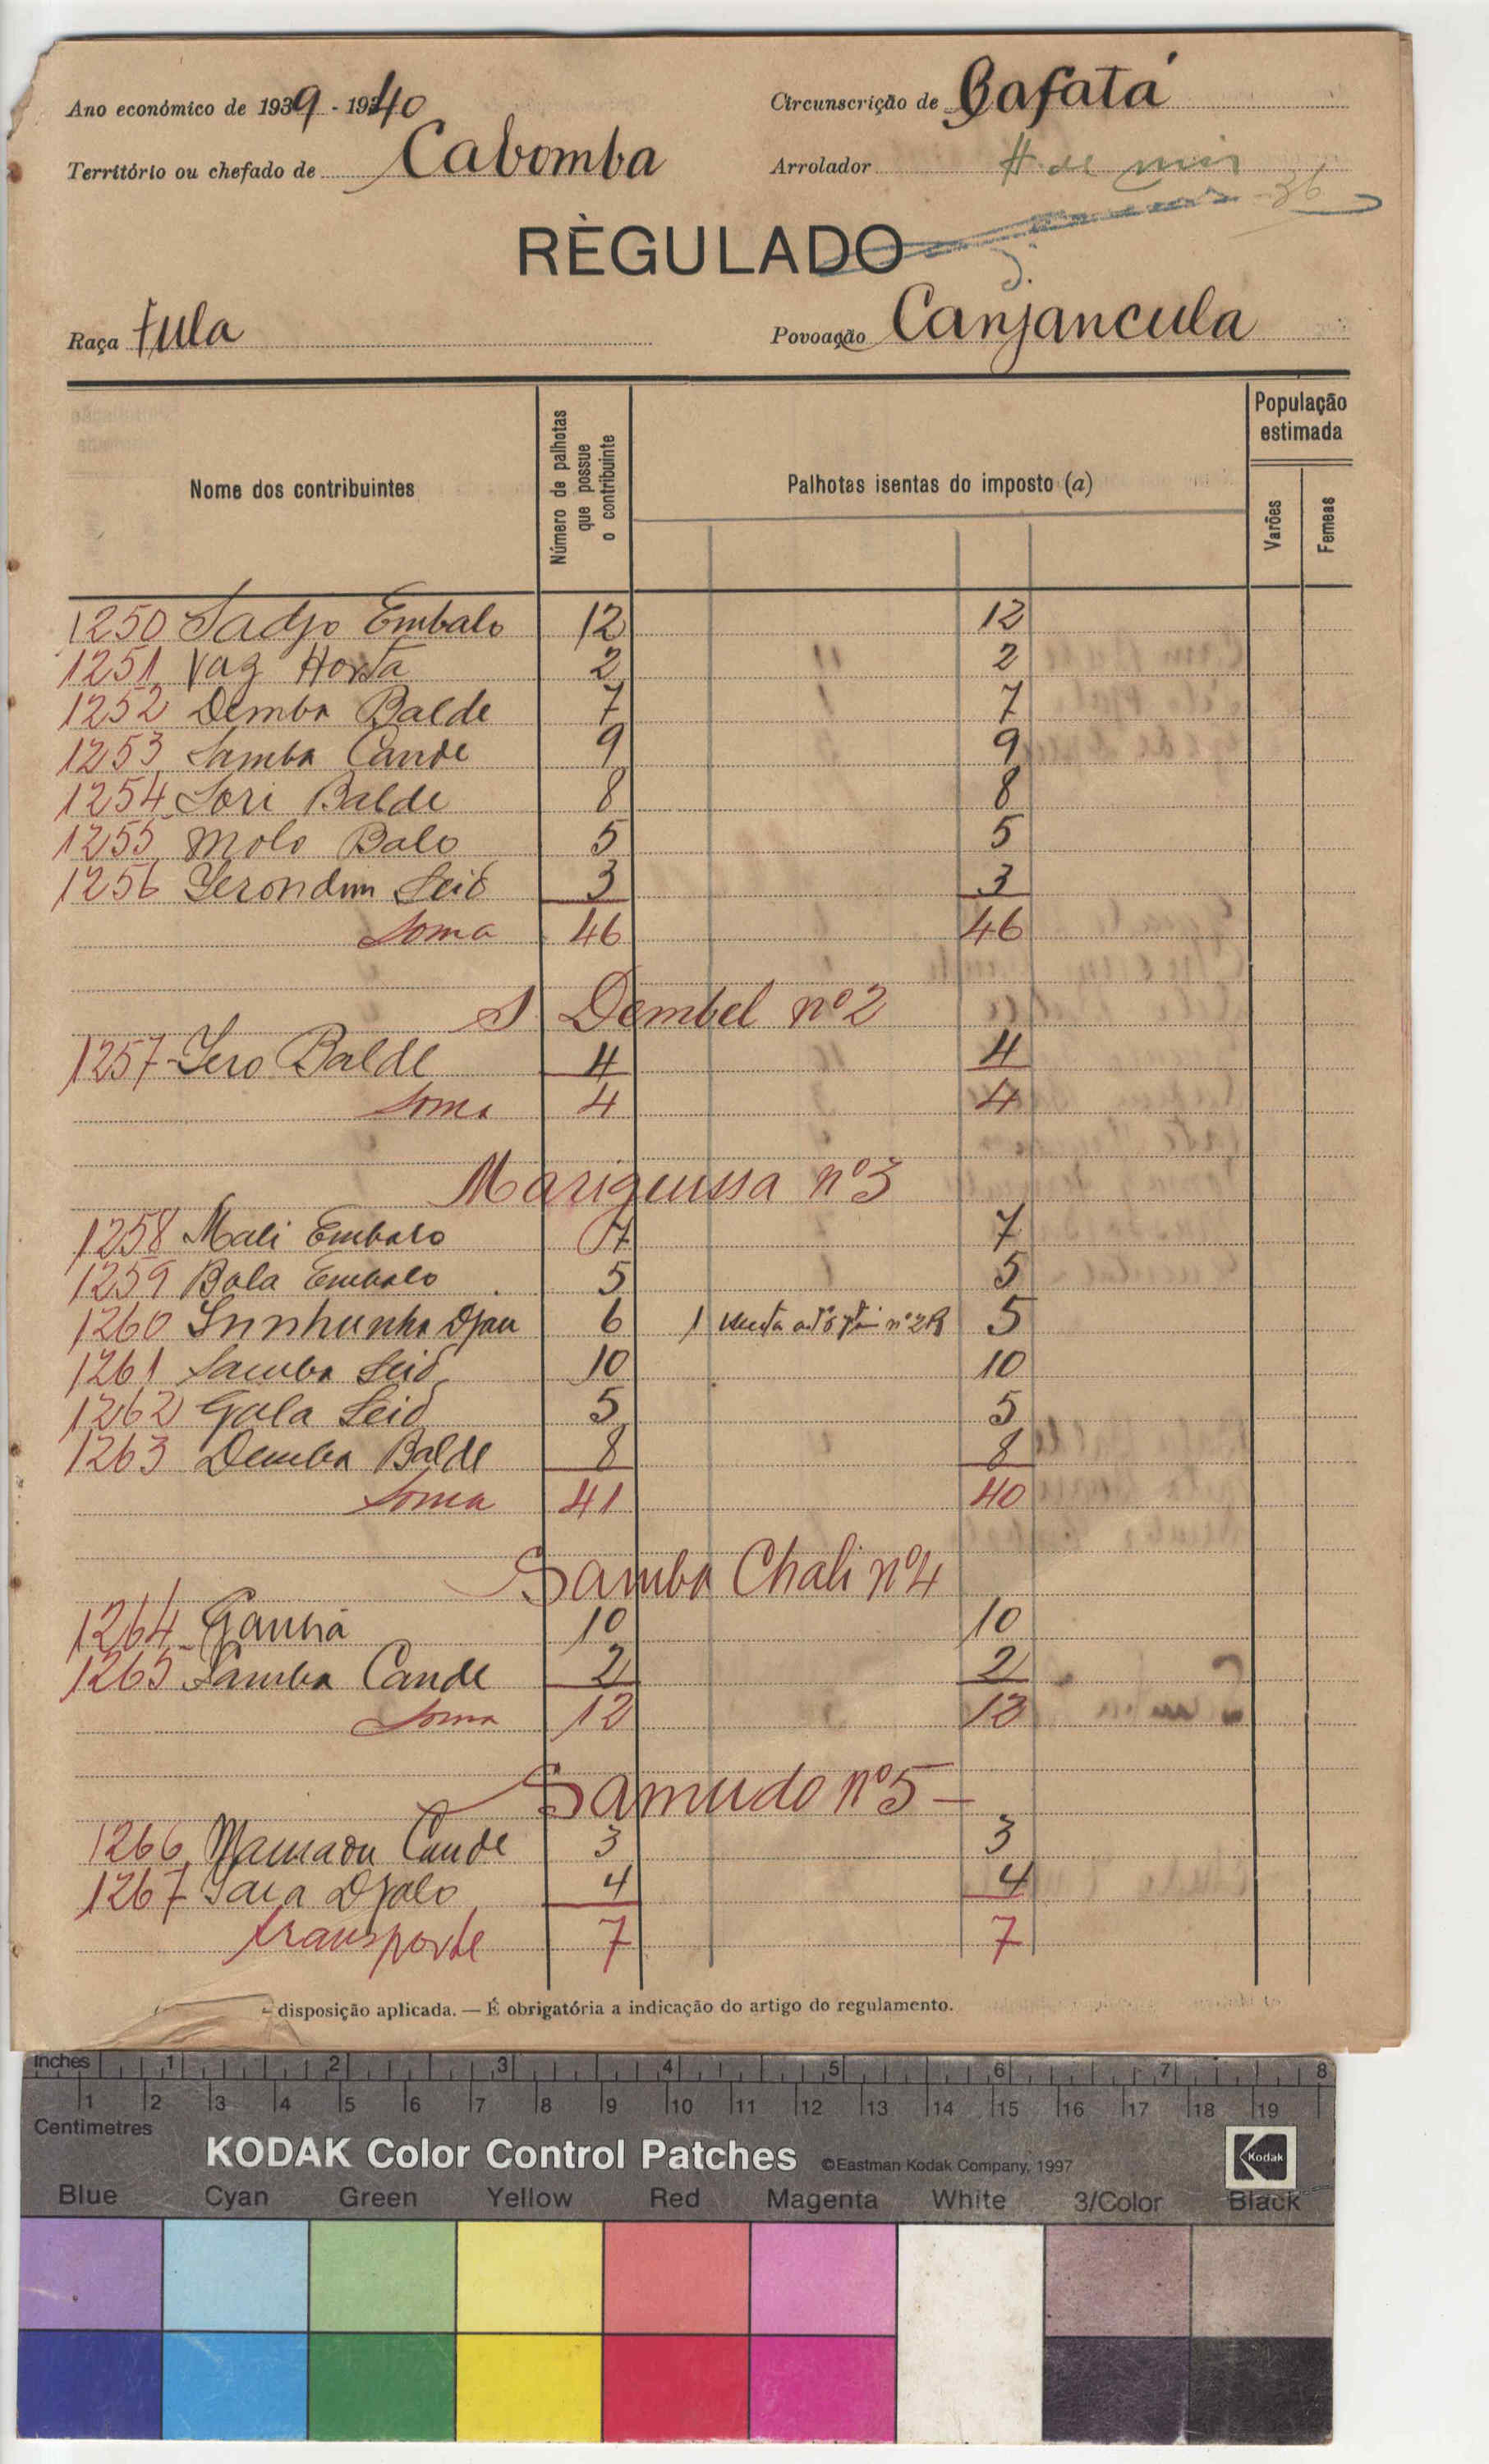 Ano económico de 1939 - 1940
Circunscrição de Bafatá
Território ou chefado de Cabomba
Arrolador
REGULADO
36
Raça Fula
Povoação Canjancula
Nome dos contribuintes
Número de palhotas que possue o contribuinte
Palhotas isentas do imposto (a)
População estimada
Varões
Femeas
1250 Sadjo Embalo 12 12
1251 Vaz Horta 2 2
1252 Demba Balde 7 7
1253 Samba Cande 9 9
1254 Sori Balde 8 8
1255 Molo Balo 5 5
1256 3 3
Soma 46 46
S. Dembel nº2
1257 Iero Balde 4 4
Soma 4 4
Mariguissa nº3
1258 Mali Embalo 7 7
1259 Bola Embalo 5 5
1260 6 1 nº2R 5
1261 Samba Seid 10 10
1262 Gola Seid 5 5
1263 Demba Balde 8 8
Soma 41 40
Samba Chali nº4
1264 10 10
1265 Samba Cande 2 2
Soma 12 12
Samudo nº5 -
1266 Mamadu Cande 3 3
1267 Djalo 4 4
transporte 7 7
disposição aplicada. — É obrigatória a indicação do artigo do regulamento.
Inches 1 2 3 4 5 6 7 8
1 2 3 4 5 6 7 8 9 10 11 12 13 14 15 16 17 18 19
Centimetres
KODAK Color Control Patches ©Eastman Kodak Company, 1997 Kodak
Blue Cyan Green Yellow Red Magenta White 3/Color Black